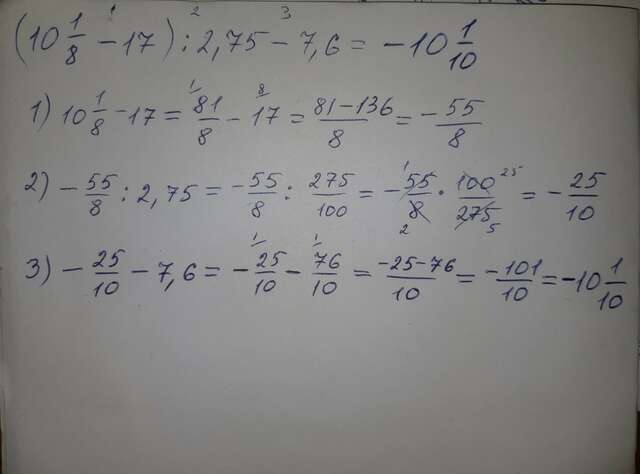 (10 1/8 - 17) : 2,75 - 7,6 = -10 1/10
1) 10 1/8 - 17 = 81/8 - 17 = (81-136)/8 = -55/8
2) -55/8 : 2,75 = -55/8 : 275/100 = -55/8 · 100/275 = -25/10
3) -25/10 - 7,6 = -25/10 - 76/10 = (-25-76)/10 = -101/10 = -10 1/10